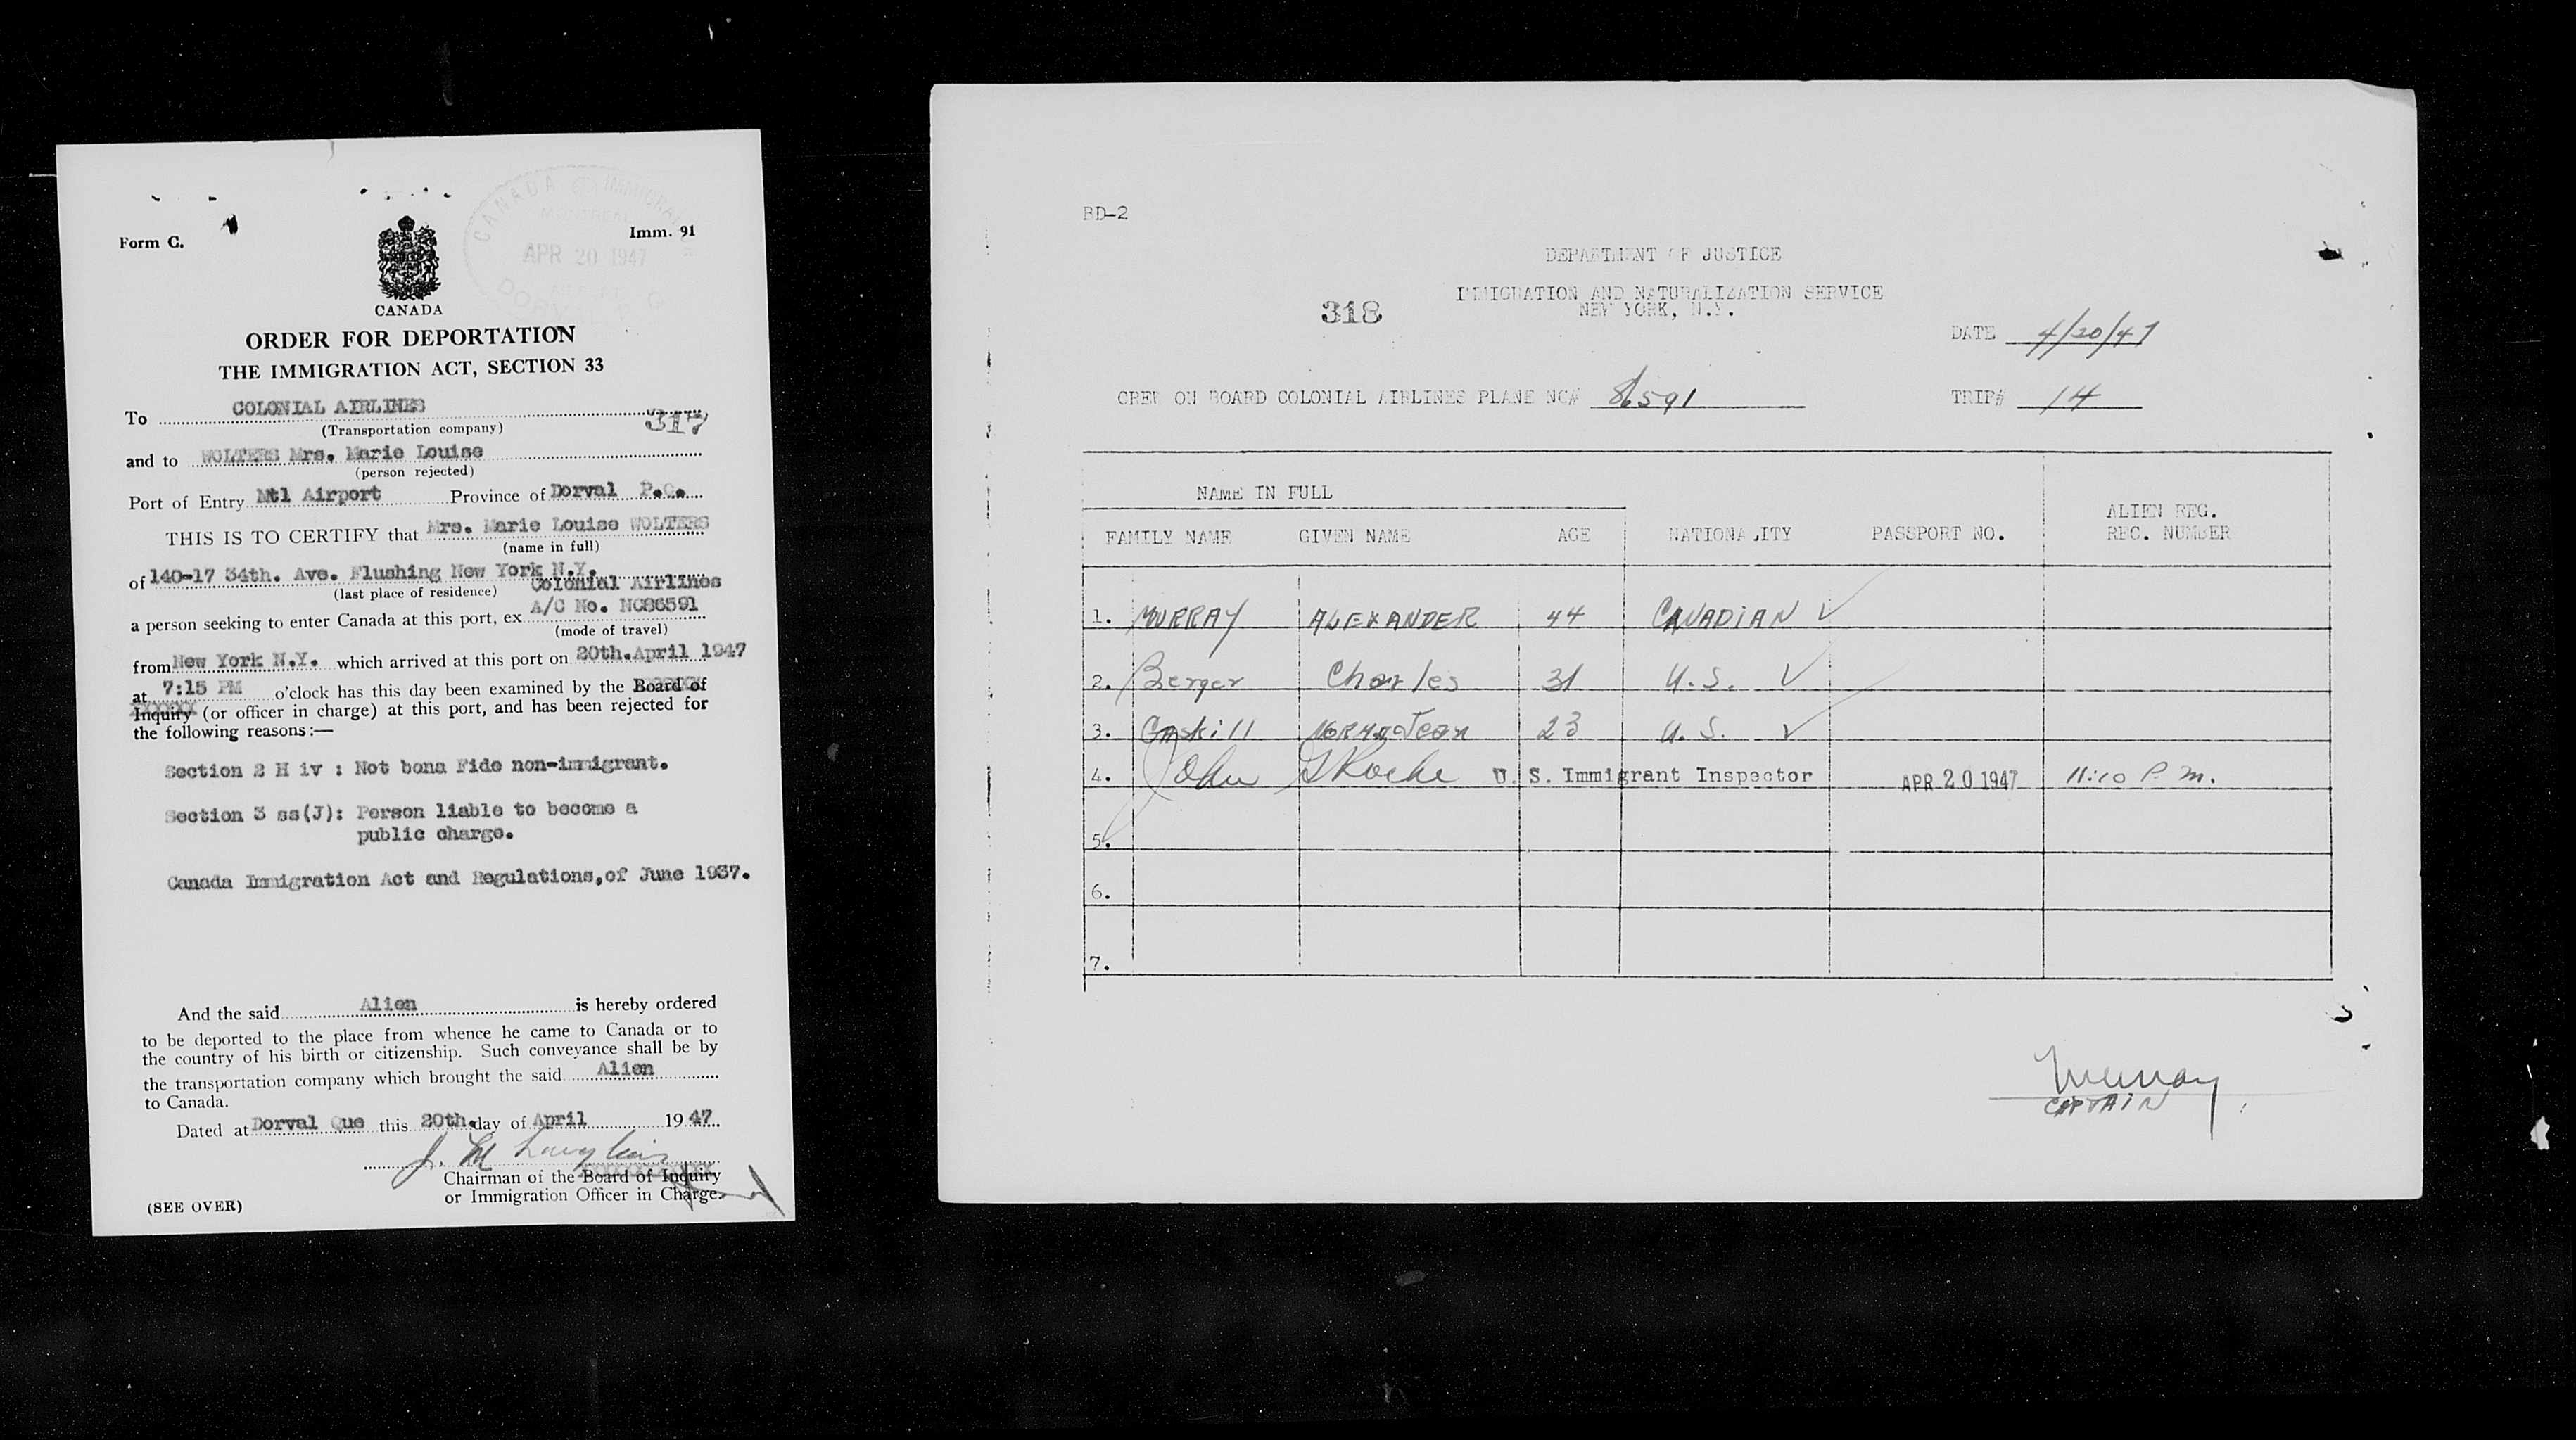 Form C.
Imm. 91
CANADA IMMIGRATION
MONTREAL
APR 20 1947
DORVAL
CANADA
ORDER FOR DEPORTATION
THE IMMIGRATION ACT, SECTION 33
To COLONIAL AIRLINES
(Transportation company)
317
and to WOLTERS Mrs. Marie Louise
(person rejected)
Port of Entry Mtl Airport Province of Dorval P.Q.
THIS IS TO CERTIFY that Mrs. Marie Louise WOLTERS
(name in full)
of 140-17 34th. Ave. Flushing New York N.Y.
(last place of residence)
Colonial Airlines
A/C No. NC86591
a person seeking to enter Canada at this port, ex
(mode of travel)
from New York N.Y. which arrived at this port on 20th.April 1947
at 7:15 PM o'clock has this day been examined by the Board of
Inquiry (or officer in charge) at this port, and has been rejected for
the following reasons:—
Section 2 H iv : Not bona Fide non-immigrant.
Section 3 ss(J): Person liable to become a
public charge.
Canada Immigration Act and Regulations,of June 1937.
And the said Alien is hereby ordered
to be deported to the place from whence he came to Canada or to
the country of his birth or citizenship. Such conveyance shall be by
the transportation company which brought the said Alien
to Canada.
Dated at Dorval Que this 20th. day of April 1947.
Chairman of the Board of Inquiry
or Immigration Officer in Charge.
(SEE OVER)
BD-2
DEPARTMENT OF JUSTICE
IMMIGRATION AND NATURALIZATION SERVICE
NEW YORK, N.Y.
318
DATE 4/20/47
CREW ON BOARD COLONIAL AIRLINES PLANE NC# 86591
TRIP# 14
NAME IN FULL
FAMILY NAME GIVEN NAME AGE NATIONALITY PASSPORT NO. ALIEN REG.
REC. NUMBER
1. MURRAY ALEXANDER 44 CANADIAN ✓
2. Berger Charles 31 U.S. ✓
3. Gaskill Norma Jean 23 U.S. ✓
4. John Roche U. S. Immigrant Inspector APR 20 1947 11:10 P.M.
5.
6.
7.
Murray
CAPTAIN